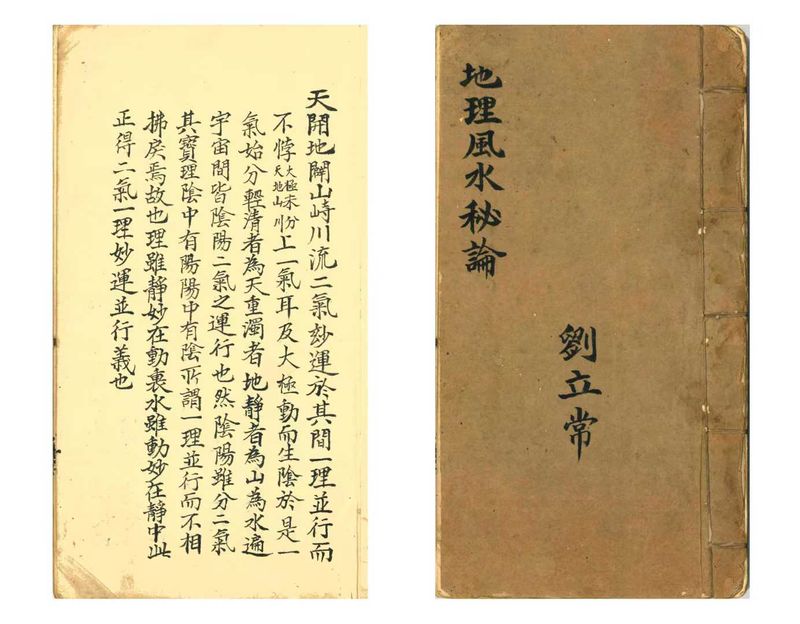 地理風水秘論
劉立常
天開地闢山峙川流二氣玅運於其間一理並行而
不悖大極未分天地山川上一氣耳及大極動而生陰於是一
氣始分輕清者為天重濁者地靜者為山為水遍
宇宙間皆陰陽二氣之運行也然陰陽雖分二氣
其寶理陰中有陽陽中有陰所謂一理並行而不相
拂戾焉故也理雖靜妙在動裏水雖動妙在靜中此
正得二氣一理妙運並行義也